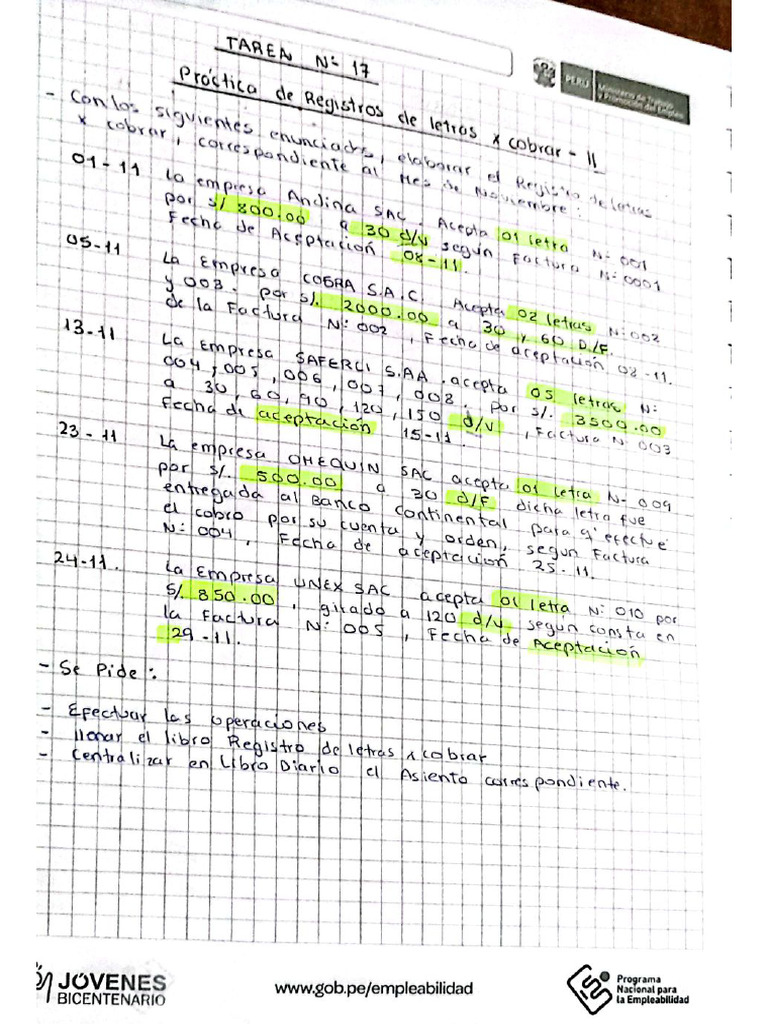 TAREA N° 17
PERÚ Ministerio de Trabajo y Promoción del Empleo
Práctica de Registros de letras x cobrar - 11
- Con los siguientes enunciados, elaborar el Registro de letras
x cobrar, correspondiente al Mes de Noviembre:
01-11 La empresa Andina SAC. Acepta 01 letra N° 001
por S/ 800.00 a 30 d/v según Factura N° 0001
Fecha de Aceptación 08-11.
05-11 La Empresa COBRA S.A.C. Acepta 02 letras N° 002
y 003. por S/. 2000.00 a 30 y 60 D/F.
de la Factura N° 002, Fecha de aceptación 08-11.
13-11 La empresa SAFERCI S.AA. acepta 05 letras N°
004, 005, 006, 007, 008. por S/. 3500.00
a 30, 60, 90, 120, 150 d/v, Factura N° 003
Fecha de aceptación 15-11.
23-11 La empresa OHEQUIN SAC acepta 01 letra N° 009
por S/. 500.00 a 30 d/F dicha letra fue
entregada al Banco Continental para q' efectue
el cobro por su cuenta y orden, según Factura
N° 004, Fecha de aceptación 25-11.
24-11. La Empresa UNEX SAC acepta 01 letra N° 010 por
S/. 850.00, girado a 120 d/v según consta en
la Factura N° 005, Fecha de Aceptación
29-11.
- Se Pide:
- Efectuar las operaciones
- llenar el libro Registro de letras x cobrar
- Centralizar en Libro Diario el Asiento correspondiente.
JÓVENES
BICENTENARIO
www.gob.pe/empleabilidad
Programa
Nacional para
la Empleabilidad